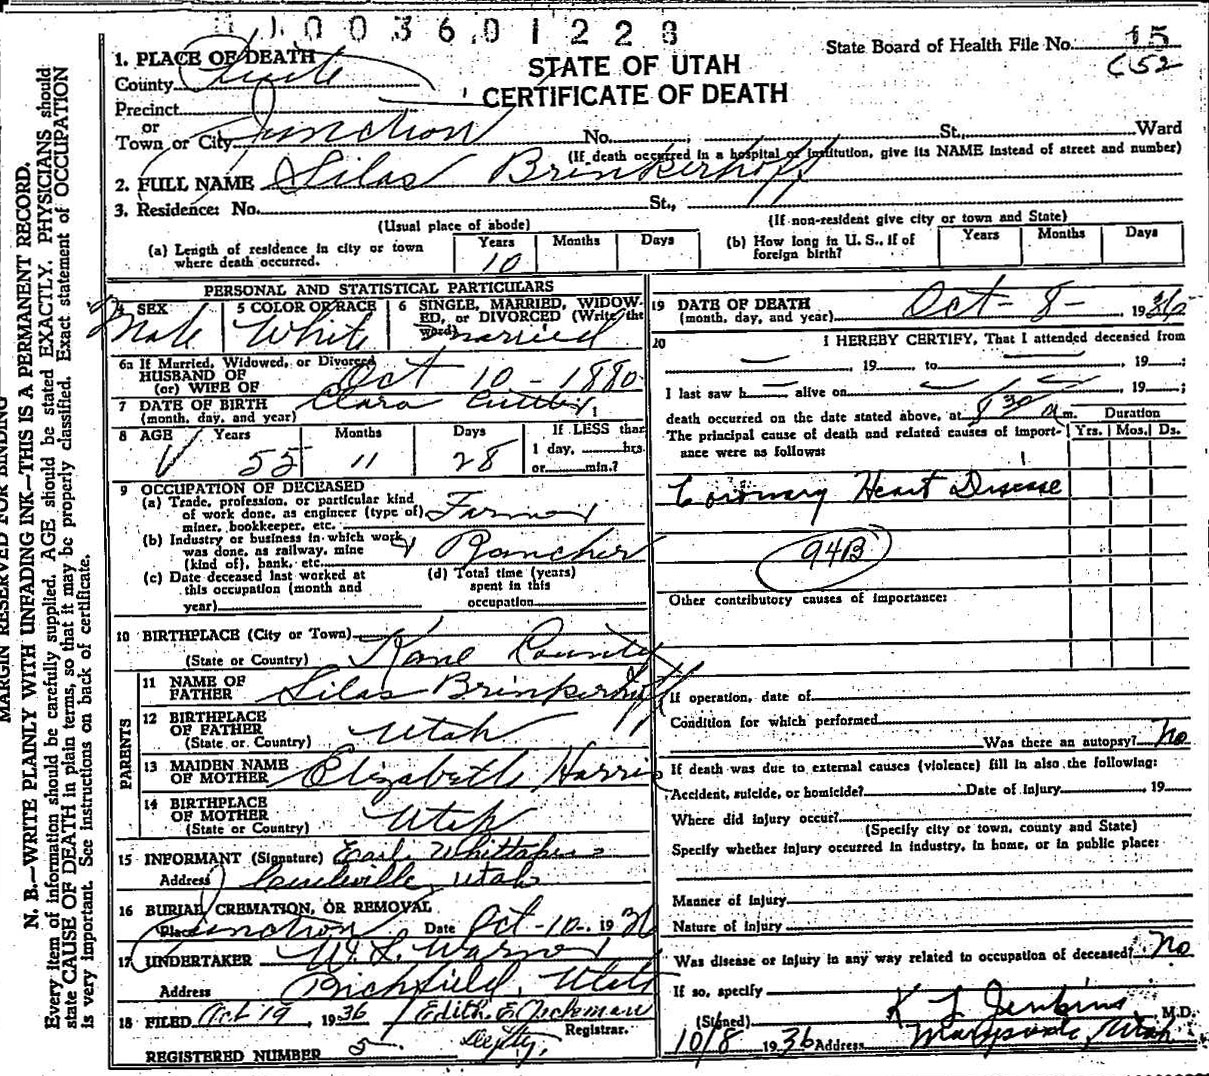 1 1 0 0 3 6 0 1 2 2 3
State Board of Health File No. 15
C52
STATE OF UTAH
CERTIFICATE OF DEATH
1. PLACE OF DEATH
County Piute
Precinct
or
Town or City Junction No. ; St., Ward
(If death occurred in a hospital or institution, give its NAME instead of street and number)
2. FULL NAME Silas Brinkerhoff
3. Residence: No. St.,
(Usual place of abode) (If non-resident give city or town and State)
(a) Length of residence in city or town where death occurred. Years 10 Months Days
(b) How long in U. S., if of foreign birth? Years Months Days
PERSONAL AND STATISTICAL PARTICULARS
4 SEX 5 COLOR OR RACE 6 SINGLE, MARRIED, WIDOW-
ED, or DIVORCED (Write the
word)
Male White Married
6a If Married, Widowed, or Divorced
HUSBAND OF
(or) WIFE OF Oct 10 - 1880
7 DATE OF BIRTH Clara
(month, day, and year)
8 AGE Years Months Days If LESS than
1 day, hrs.
55 11 28 or min.?
9 OCCUPATION OF DECEASED
(a) Trade, profession, or particular kind
of work done, as engineer (type of) Farmer
miner, bookkeeper, etc.
(b) Industry or business in which work
was done, as railway, mine Rancher
(kind of), bank, etc.
(c) Date deceased last worked at
this occupation (month and
year)
(d) Total time (years)
spent in this
occupation
10 BIRTHPLACE (City or Town)
(State or Country) Kane County
PARENTS
11 NAME OF
FATHER Silas Brinkerhoff
12 BIRTHPLACE
OF FATHER Utah
(State or Country)
13 MAIDEN NAME
OF MOTHER Elizabeth Harris
14 BIRTHPLACE
OF MOTHER Utah
(State or Country)
15 INFORMANT (Signature) Earl Whittaker
Address Circleville, Utah
16 BURIAL, CREMATION, OR REMOVAL
Place Junction Date Oct-10-, 1936
17 UNDERTAKER W. L. Warner
Address Richfield, Utah
18 FILED Oct 19, 1936 Edith E
Registrar.
Deputy,
REGISTERED NUMBER 5
19 DATE OF DEATH
(month, day, and year) Oct-8-, 1936
20 I HEREBY CERTIFY, That I attended deceased from
, 19 , to , 19 ;
I last saw h alive on , 19 ;
death occurred on the date stated above, at 8 30 a m.
Duration
The principal cause of death and related causes of import-
ance were as follows: Yrs. Mos. Ds.
Coronary Heart Disease
94B
Other contributory causes of importance:
If operation, date of
Condition for which performed
Was there an autopsy? No
If death was due to external causes (violence) fill in also the following:
Accident, suicide, or homicide? Date of injury , 19
Where did injury occur?
(Specify city or town, county and State)
Specify whether injury occurred in industry, in home, or in public place:
Manner of injury
Nature of injury
Was disease or injury in any way related to occupation of deceased? No
If so, specify
(Signed) K L Jenkins M.D.
10/8 1936 Address Marysvale, Utah
MARGIN RESERVED FOR BINDING
N. B.—WRITE PLAINLY WITH UNFADING INK—THIS IS A PERMANENT RECORD.
Every item of information should be carefully supplied. AGE should be stated EXACTLY. PHYSICIANS should
state CAUSE OF DEATH in plain terms, so that it may be properly classified. Exact statement of OCCUPATION
is very important. See instructions on back of certificate.